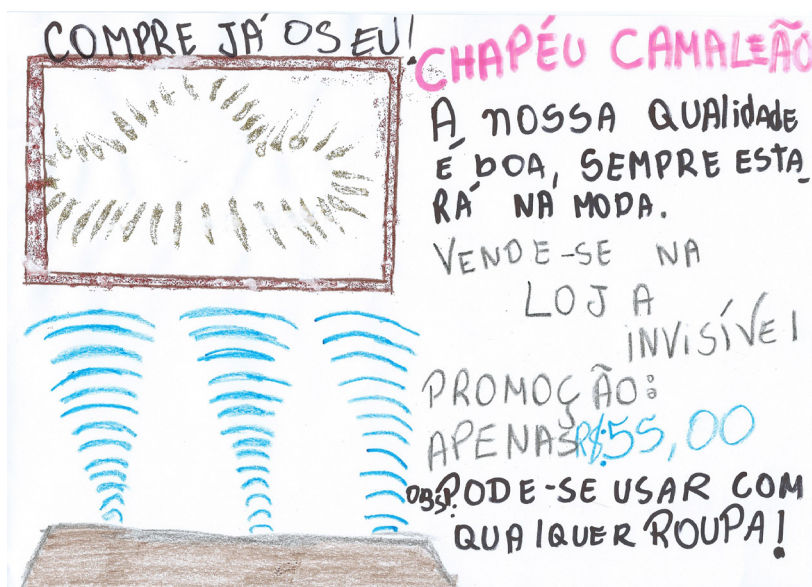 COMPRE JÁ OS EU!
CHAPÉU CAMALEÃO
A NOSSA QUALIDADE
É BOA, SEMPRE ESTA_
RÁ NA MODA.
VENDE-SE NA
LOJA
INVISÍVEL
PROMOÇÃO:
APENAS R$:55,00
OBS: PODE-SE USAR COM
QUALQUER ROUPA!